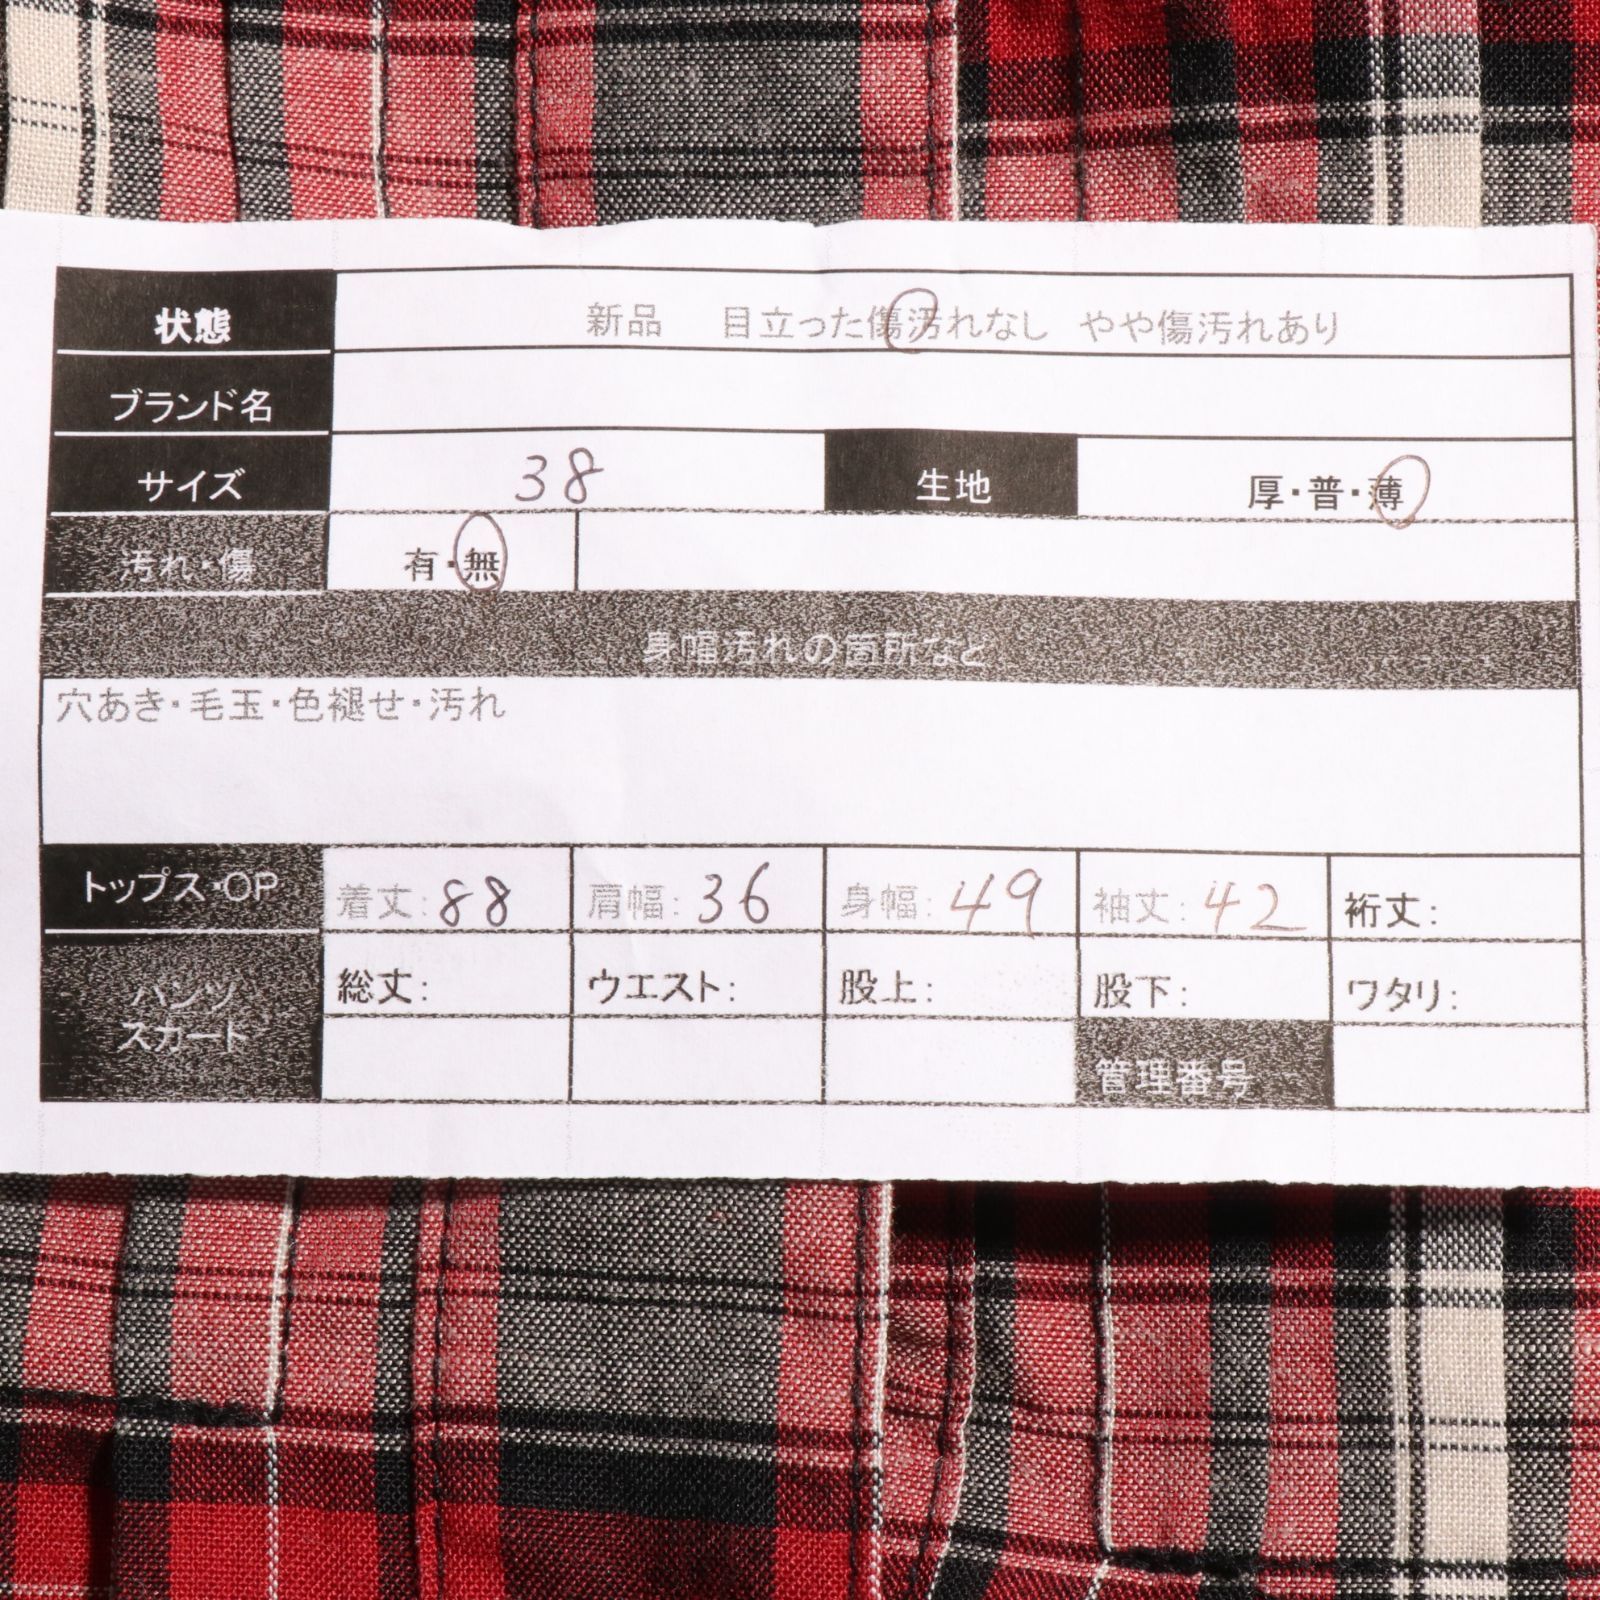 状態 新品 目立った傷汚れなし やや傷汚れあり
ブランド名
サイズ 38 生地 厚・普・薄
汚れ・傷 有・無
身幅汚れの箇所など
穴あき・毛玉・色褪せ・汚れ
トップス・OP 着丈:88 肩幅:36 身幅:49 袖丈:42 裄丈:
パンツ 総丈: ウエスト: 股上: 股下: ワタリ:
スカート
管理番号